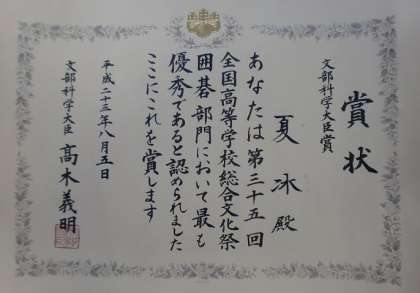 賞状
文部科学大臣賞
夏冰殿
あなたは第三十五回
全国高等学校総合文化祭
囲碁部門において最も
優秀であると認められました
ここにこれを賞します
平成二十三年八月五日
文部科学大臣 高木義明